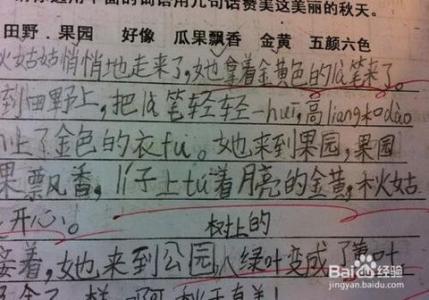 适用下面的词语用几句话赞美这美丽的秋天。
田野.果园 好像 瓜果飘香 金黄 五颜六色
秋姑姑悄悄地走来了,她拿着金黄色的la笔来了。
到田野上,把la笔轻轻一huī,高liang和dào
上了金色的衣fu。她来到果园,果园
果飘香,lí子上tú着月亮的金黄,秋姑
开心。
树上的
接着,她来到公园,人绿叶变成了黄叶
Baidu经验
jingyan.baidu.com